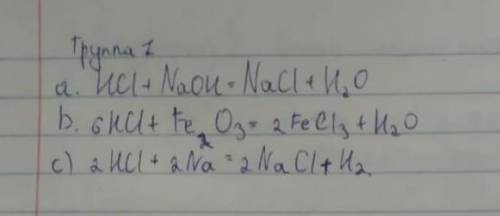 Группа 1
a. HCl + NaOH = NaCl + H₂O
b. 6HCl + Fe₂O₃ = 2FeCl₃ + H₂O
c) 2HCl + 2Na = 2NaCl + H₂.